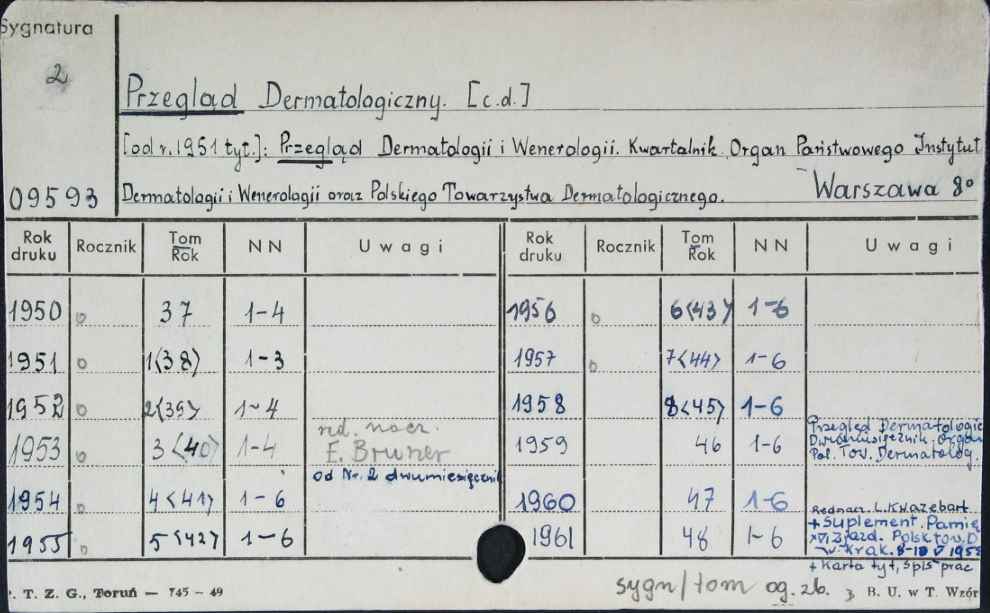 Sygnatura
2
Przegląd Dermatologiczny. [c.d.]
[od r. 1951 tyt.]: Przegląd Dermatologii i Wenerologii. Kwartalnik. Organ Państwowego Instytut
09593 Dermatologii i Wenerologii oraz Polskiego Towarzystwa Dermatologicznego. Warszawa 8°
Rok druku Rocznik Tom Rok NN Uwagi Rok druku Rocznik Tom Rok NN Uwagi
1950 o 37 1-4 1956 o 6<43> 1-6
1951 o 1<38> 1-3 1957 o 7<44> 1-6
1952 o 2<39> 1-4 1958 8<45> 1-6
1953 o 3<40> 1-4 red. nacz. E. Bruner 1959 46 1-6 Przegląd Dermatologie Dwumiesięcznik. Organ Pol. Tow. Dermatolog.
1954 o 4<41> 1-6 od Nr. 2 dwumiesięcznik 1960 47 1-6
1955 o 5<42> 1-6 1961 48 1-6 Rednacz. L. Kwazebart + Suplement. Pamię XVI Zjazd. Polsk Tow. D w Krak. 8-10 V 195
+ Karta tyt, spis prac
. T. Z. G., Toruń — 745 - 49 sygn/tom og. zb. 3 B. U. w T. Wzór